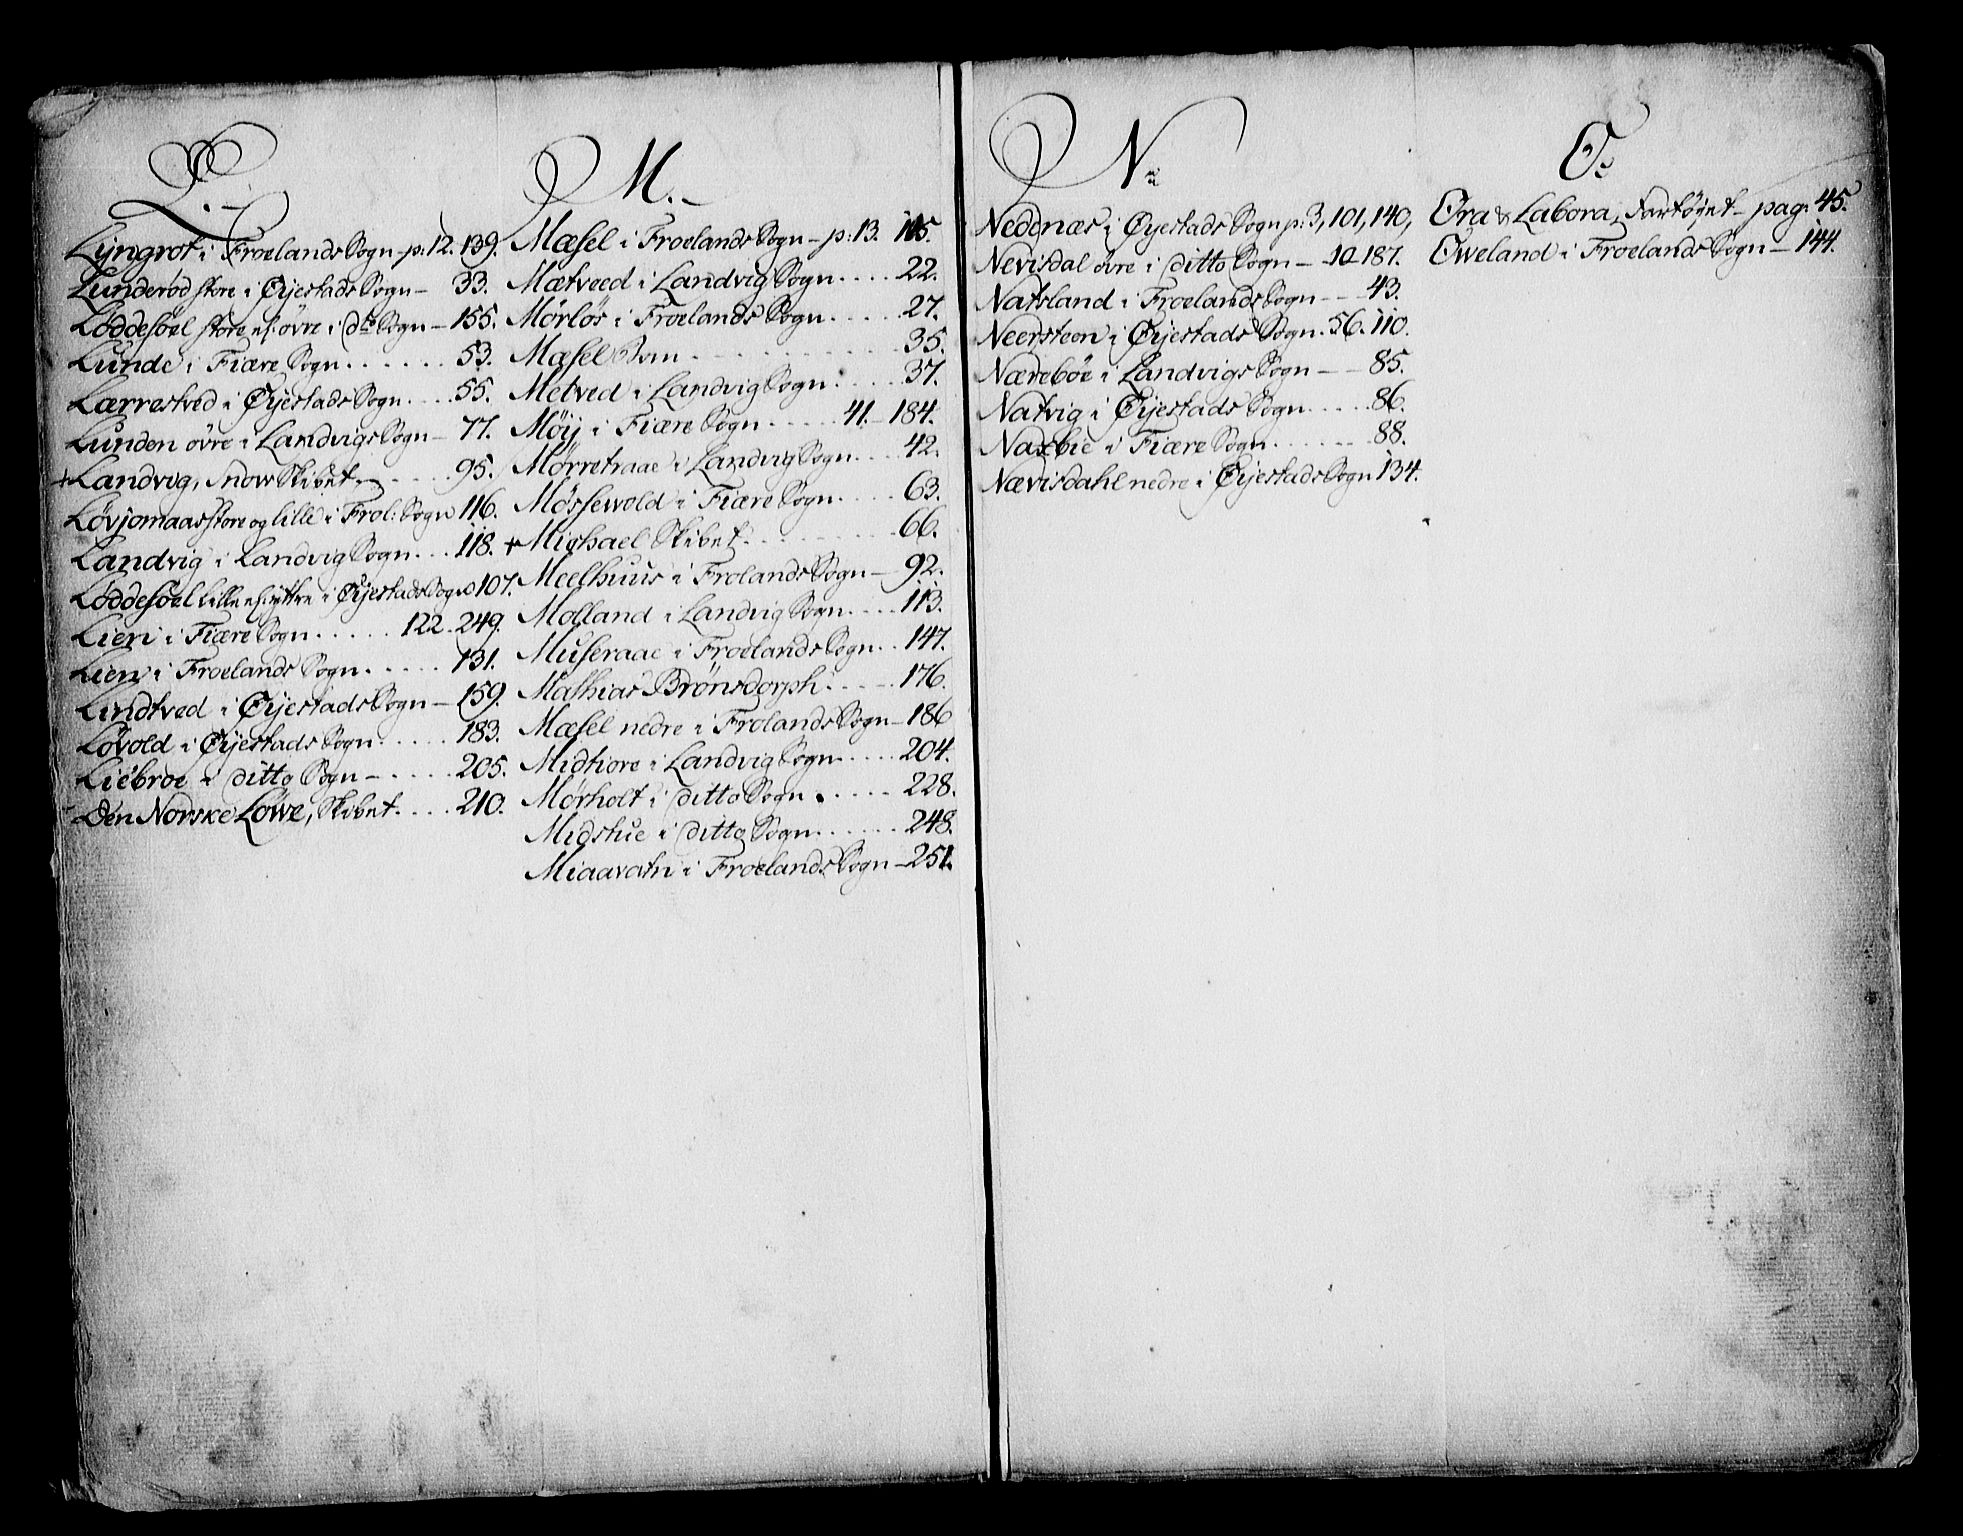 L.
Lyngrot i Froelands Sogn - p. 12. 139.
Lunderød store i Øyestads Sogn - 33.
Løddesøel store el: øvre i do Sogn - 155.
Lunde i Fiære Sogn . . . . . . 53.
Lærrestved i Øyestads Sogn . . . . 55.
Lunden øvre i Landvigs Sogn - 77.
+ Landvig, Snow Skibet - . . . . 95.
Løvjomaas store og lille i Frol: Sogn 116.
Landvig i Landvig Sogn . . . 118.
Løddesøel lille el: yttre i Øyestads Sogn 107.
Lien i Fiære Sogn . . . . . 122. 249.
Lien i Froelands Sogn . . . . . 131.
Lindtved i Øyestads Sogn - 159.
Løvold i Øyestads Sogn . . . . . 183.
Liebroe i ditto Sogn - . . . . 205.
- Den Norske Løwe, Skibet . . . . 210.
M. -
Mæsel i Froelands Sogn - p: 13. 115.
Mætveed i Landvig Sogn . . . . 22.
Mørløs i Froelands Sogn . . . . . 27.
Mæsel . . . . . . . . . . 35.
Metved i Landvig Sogn . . . . . 37.
Møy i Fiære Sogn . . . . . 41. - 184.
Mørretraae i Landvig Sogn . . . 42.
Møssewold i Fiære Sogn . . . . 63.
+ Michael Skibet . . . . . . . . . 66.
Meelhuus i Frolands Sogn - 92.
Molland i Landvig Sogn . . . . 113.
Museraae i Froelands Sogn . . 147.
Mathias Brønsdorph . . . . . 176.
Mæsel nedre i Frolands Sogn - 186
Midtiore i Landvig Sogn . . . . . 204.
Mørholt i ditto Sogn . . . . . . 228.
Midstue i ditto Sogn . . . . . . 248.
Miaavatn i Froelands Sogn - 251.
N:
Nedenæs i Øyestads Sogn p: 3, 101, 140,
Nevisdal øvre i ditto Sogn - 10 187.
Natsland i Froelands Sogn - - 43.
Neersteen i Øyestads Sogn . 56. 110.
Nærebøe i Landvigs Sogn - - 85.
Natvig i Øyestads Sogn . . . . . 86.
Naxebie i Fiære Sogn . . . . . . 88.
Nævisdahl nedre i Øyestads Sogn 134.
O:
Ora & Labora, Fartøyet - pag: 45.
Oweland i Froelands Sogn - 144.